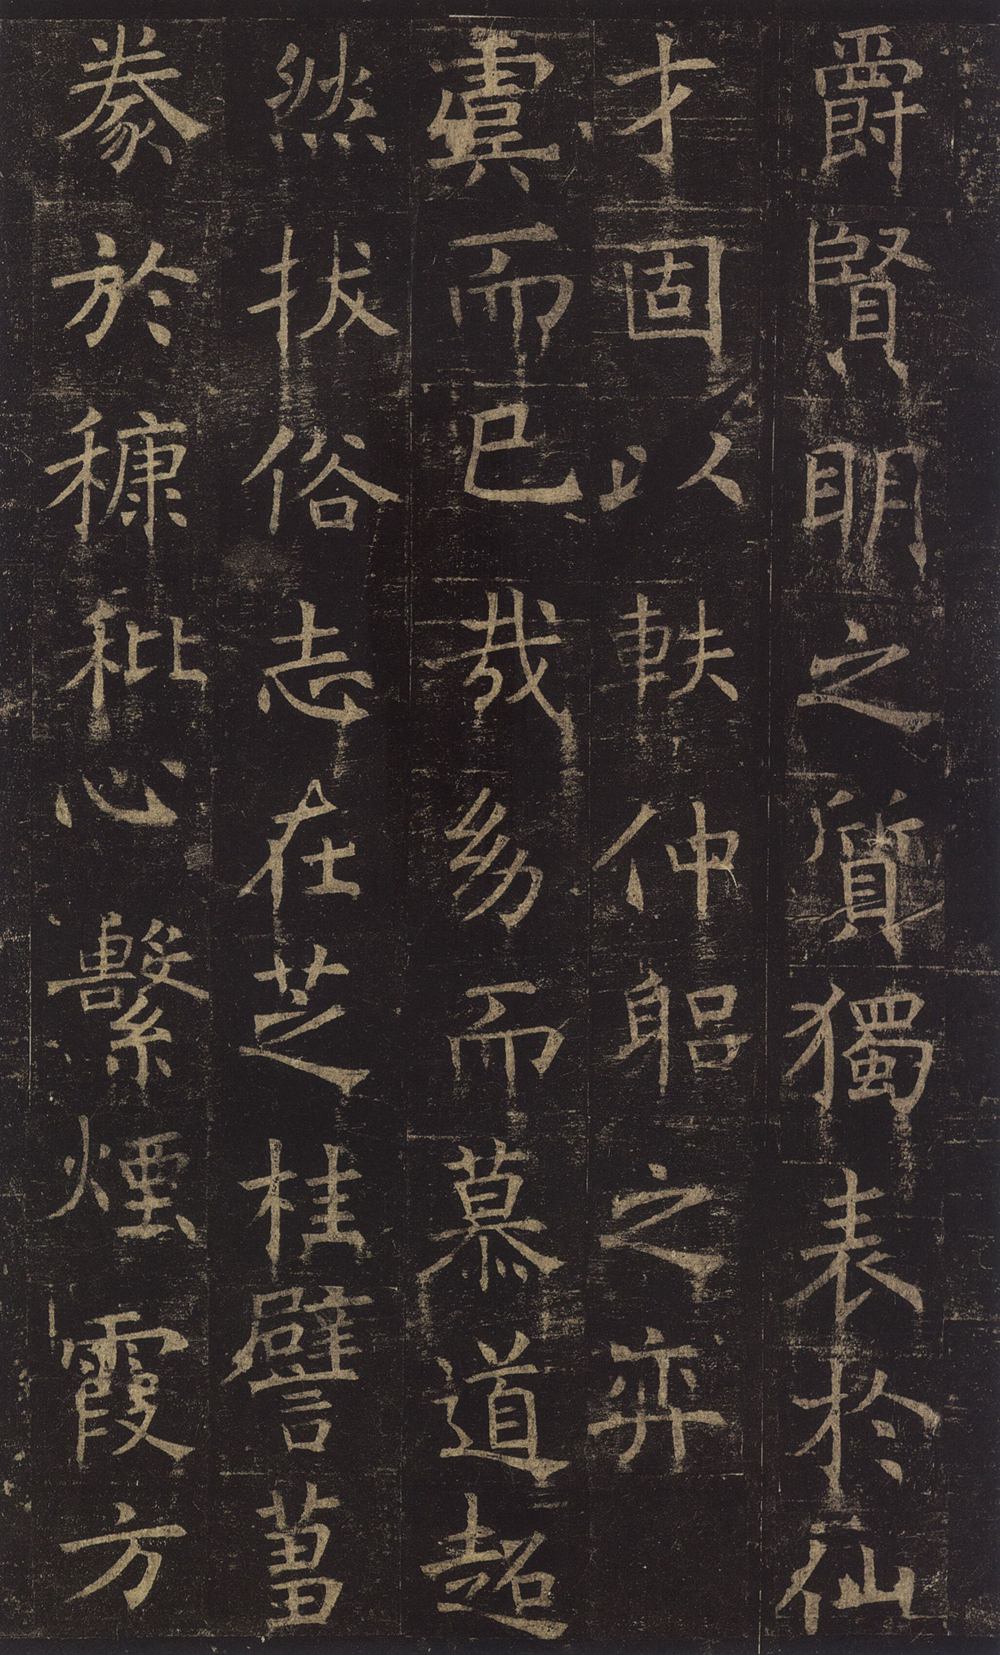 爵賢眀之質獨表於仙
才固以軼仲躳之弈
虞而已哉幼而慕道超
然拔俗志在芝桂譬蒭
豢於糠秕心繫煙霞方